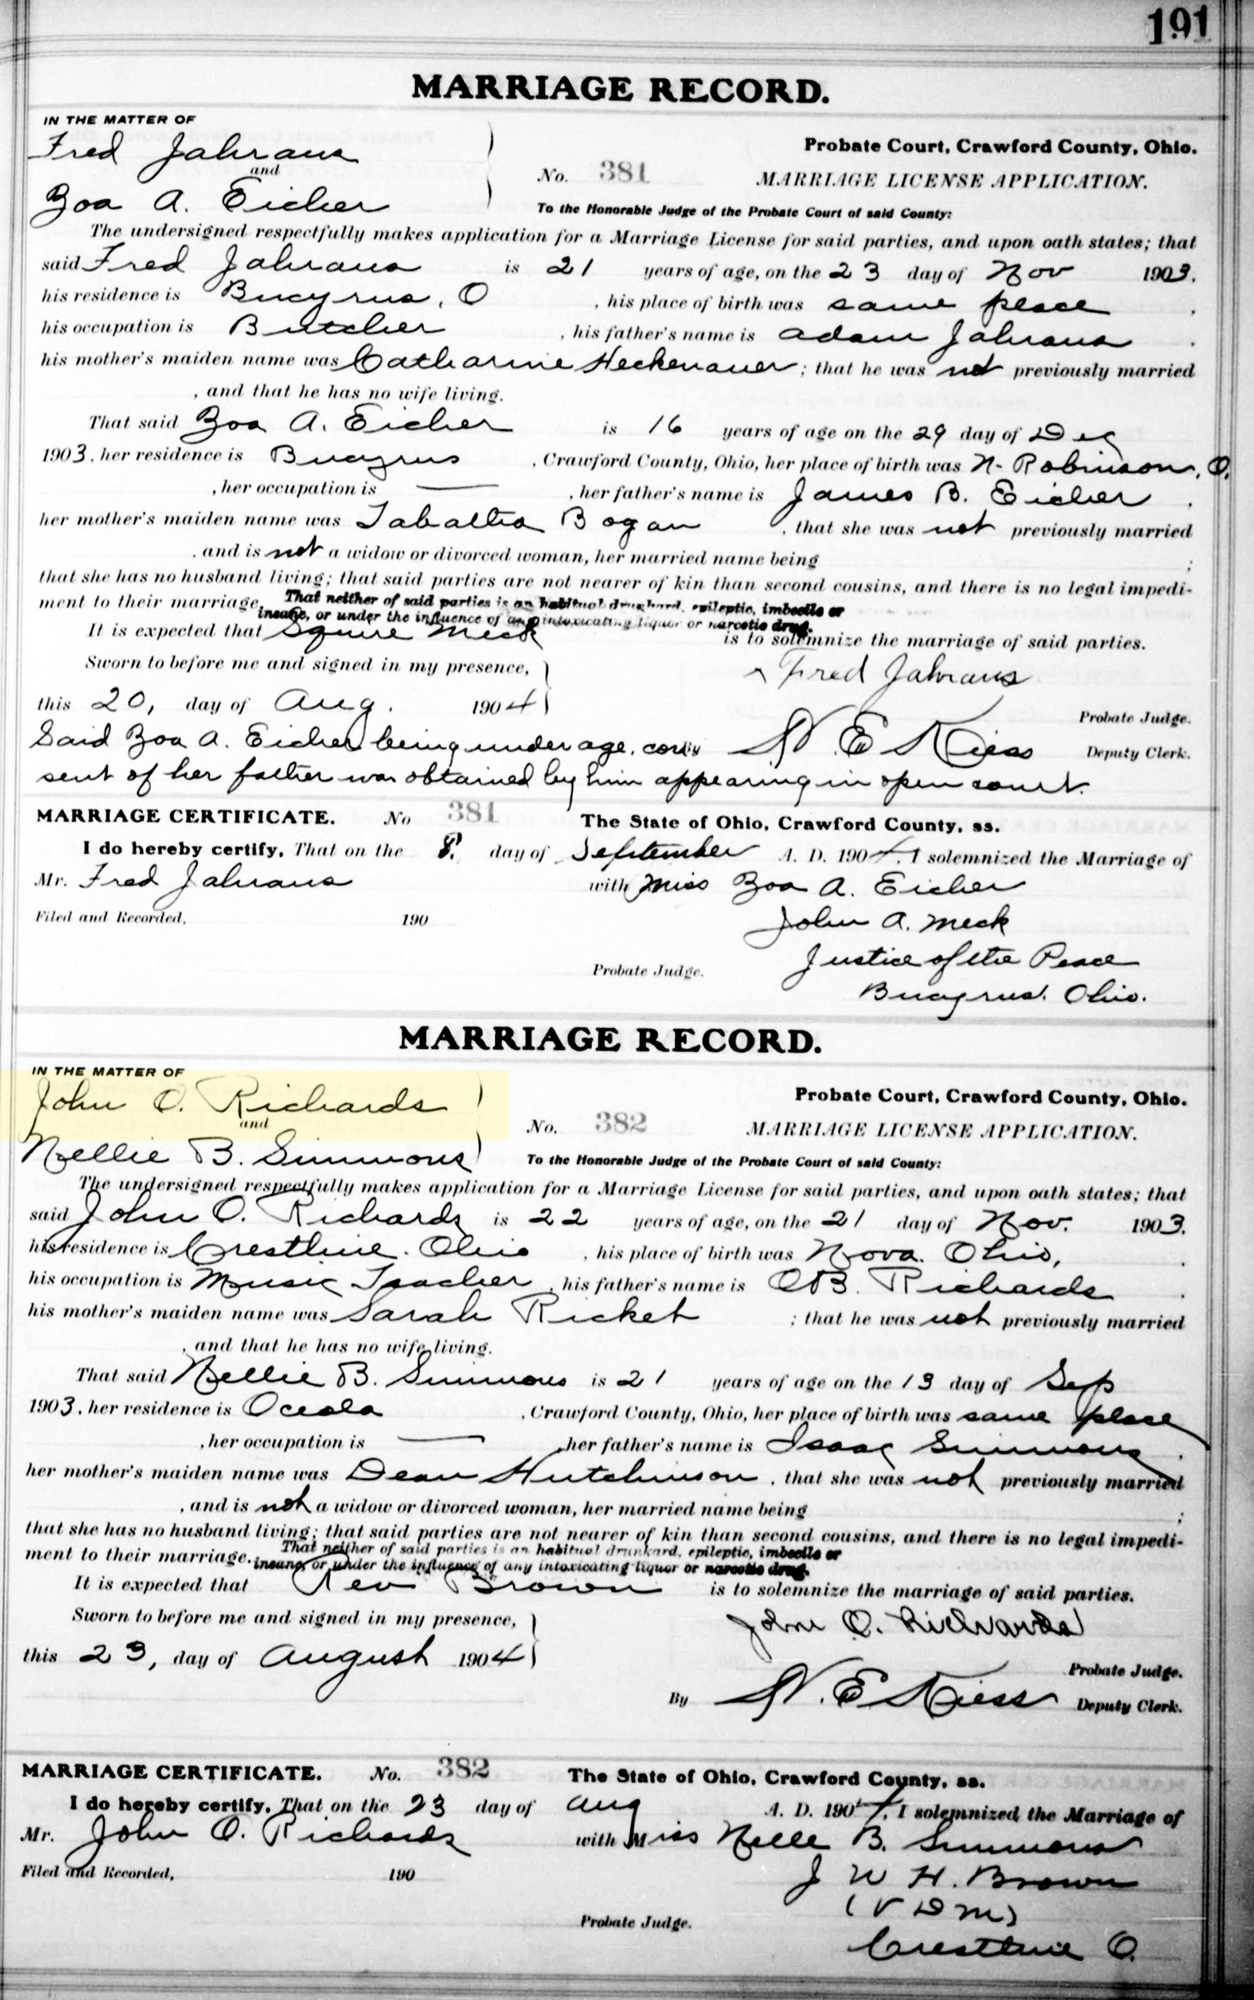 191
MARRIAGE RECORD.
IN THE MATTER OF
Fred Jahraus
and
Probate Court, Crawford County, Ohio.
Zoa A. Eicher
No. 381 MARRIAGE LICENSE APPLICATION.
To the Honorable Judge of the Probate Court of said County:
The undersigned respectfully makes application for a Marriage License for said parties, and upon oath states; that
said Fred Jahraus is 21 years of age, on the 23 day of Nov 1903.
his residence is Bucyrus, O , his place of birth was same place .
his occupation is Butcher , his father's name is Adam Jahraus .
his mother's maiden name was Catharine Heckenauer ; that he was not previously married
, and that he has no wife living.
That said Zoa A. Eicher is 16 years of age on the 29 day of Dec
1903, her residence is Bucyrus , Crawford County, Ohio, her place of birth was N. Robinson, O.
, her occupation is — , her father's name is James B. Eicher .
her mother's maiden name was Tabaltha Bogan , that she was not previously married
, and is not a widow or divorced woman, her married name being ;
that she has no husband living; that said parties are not nearer of kin than second cousins, and there is no legal impedi-
ment to their marriage. That neither of said parties is an habitual drunkard, epileptic, imbecile or
insane, or under the influence of any intoxicating liquor or narcotic drug.
It is expected that Squire Meck is to solemnize the marriage of said parties.
Sworn to before me and signed in my presence, Fred Jahraus
this 20, day of Aug. 1904 Probate Judge.
Said Zoa A. Eicher being under age, con- W. E. Kiess Deputy Clerk.
sent of her father was obtained by him appearing in open court.
MARRIAGE CERTIFICATE. No 381 The State of Ohio, Crawford County, ss.
I do hereby certify, That on the 8. day of September A. D. 1904. I solemnized the Marriage of
Mr. Fred Jahraus with Miss Zoa A. Eicher
Filed and Recorded, 190 John A. Meck
Probate Judge. Justice of the Peace
Bucyrus, Ohio.
MARRIAGE RECORD.
IN THE MATTER OF
John O. Richards
and
Probate Court, Crawford County, Ohio.
Nellie B. Simmons
No. 382 MARRIAGE LICENSE APPLICATION.
To the Honorable Judge of the Probate Court of said County:
The undersigned respectfully makes application for a Marriage License for said parties, and upon oath states; that
said John O. Richards is 22 years of age, on the 21 day of Nov. 1903.
his residence is Crestline, Ohio , his place of birth was Nova, Ohio, .
his occupation is Music Teacher , his father's name is O B. Richards .
his mother's maiden name was Sarah Ricket ; that he was not previously married
, and that he has no wife living.
That said Nellie B. Simmons is 21 years of age on the 13 day of Sep
1903, her residence is Oceola , Crawford County, Ohio, her place of birth was same place
, her occupation is — , her father's name is Isaac Simmons .
her mother's maiden name was Dean Hutchinson , that she was not previously married
, and is not a widow or divorced woman, her married name being ;
that she has no husband living; that said parties are not nearer of kin than second cousins, and there is no legal impedi-
ment to their marriage. That neither of said parties is an habitual drunkard, epileptic, imbecile or
insane, or under the influence of any intoxicating liquor or narcotic drug.
It is expected that Rev Brown is to solemnize the marriage of said parties.
Sworn to before me and signed in my presence, John O. Richards
this 23, day of August 1904 Probate Judge.
By W. E. Kiess Deputy Clerk.
MARRIAGE CERTIFICATE. No. 382 The State of Ohio, Crawford County, ss.
I do hereby certify, That on the 23 day of Aug A. D. 1904. I solemnized the Marriage of
Mr. John O. Richards with Miss Nelle B. Simmons
Filed and Recorded, 190 J W H. Brown
(V D M)
Probate Judge. Crestline O.